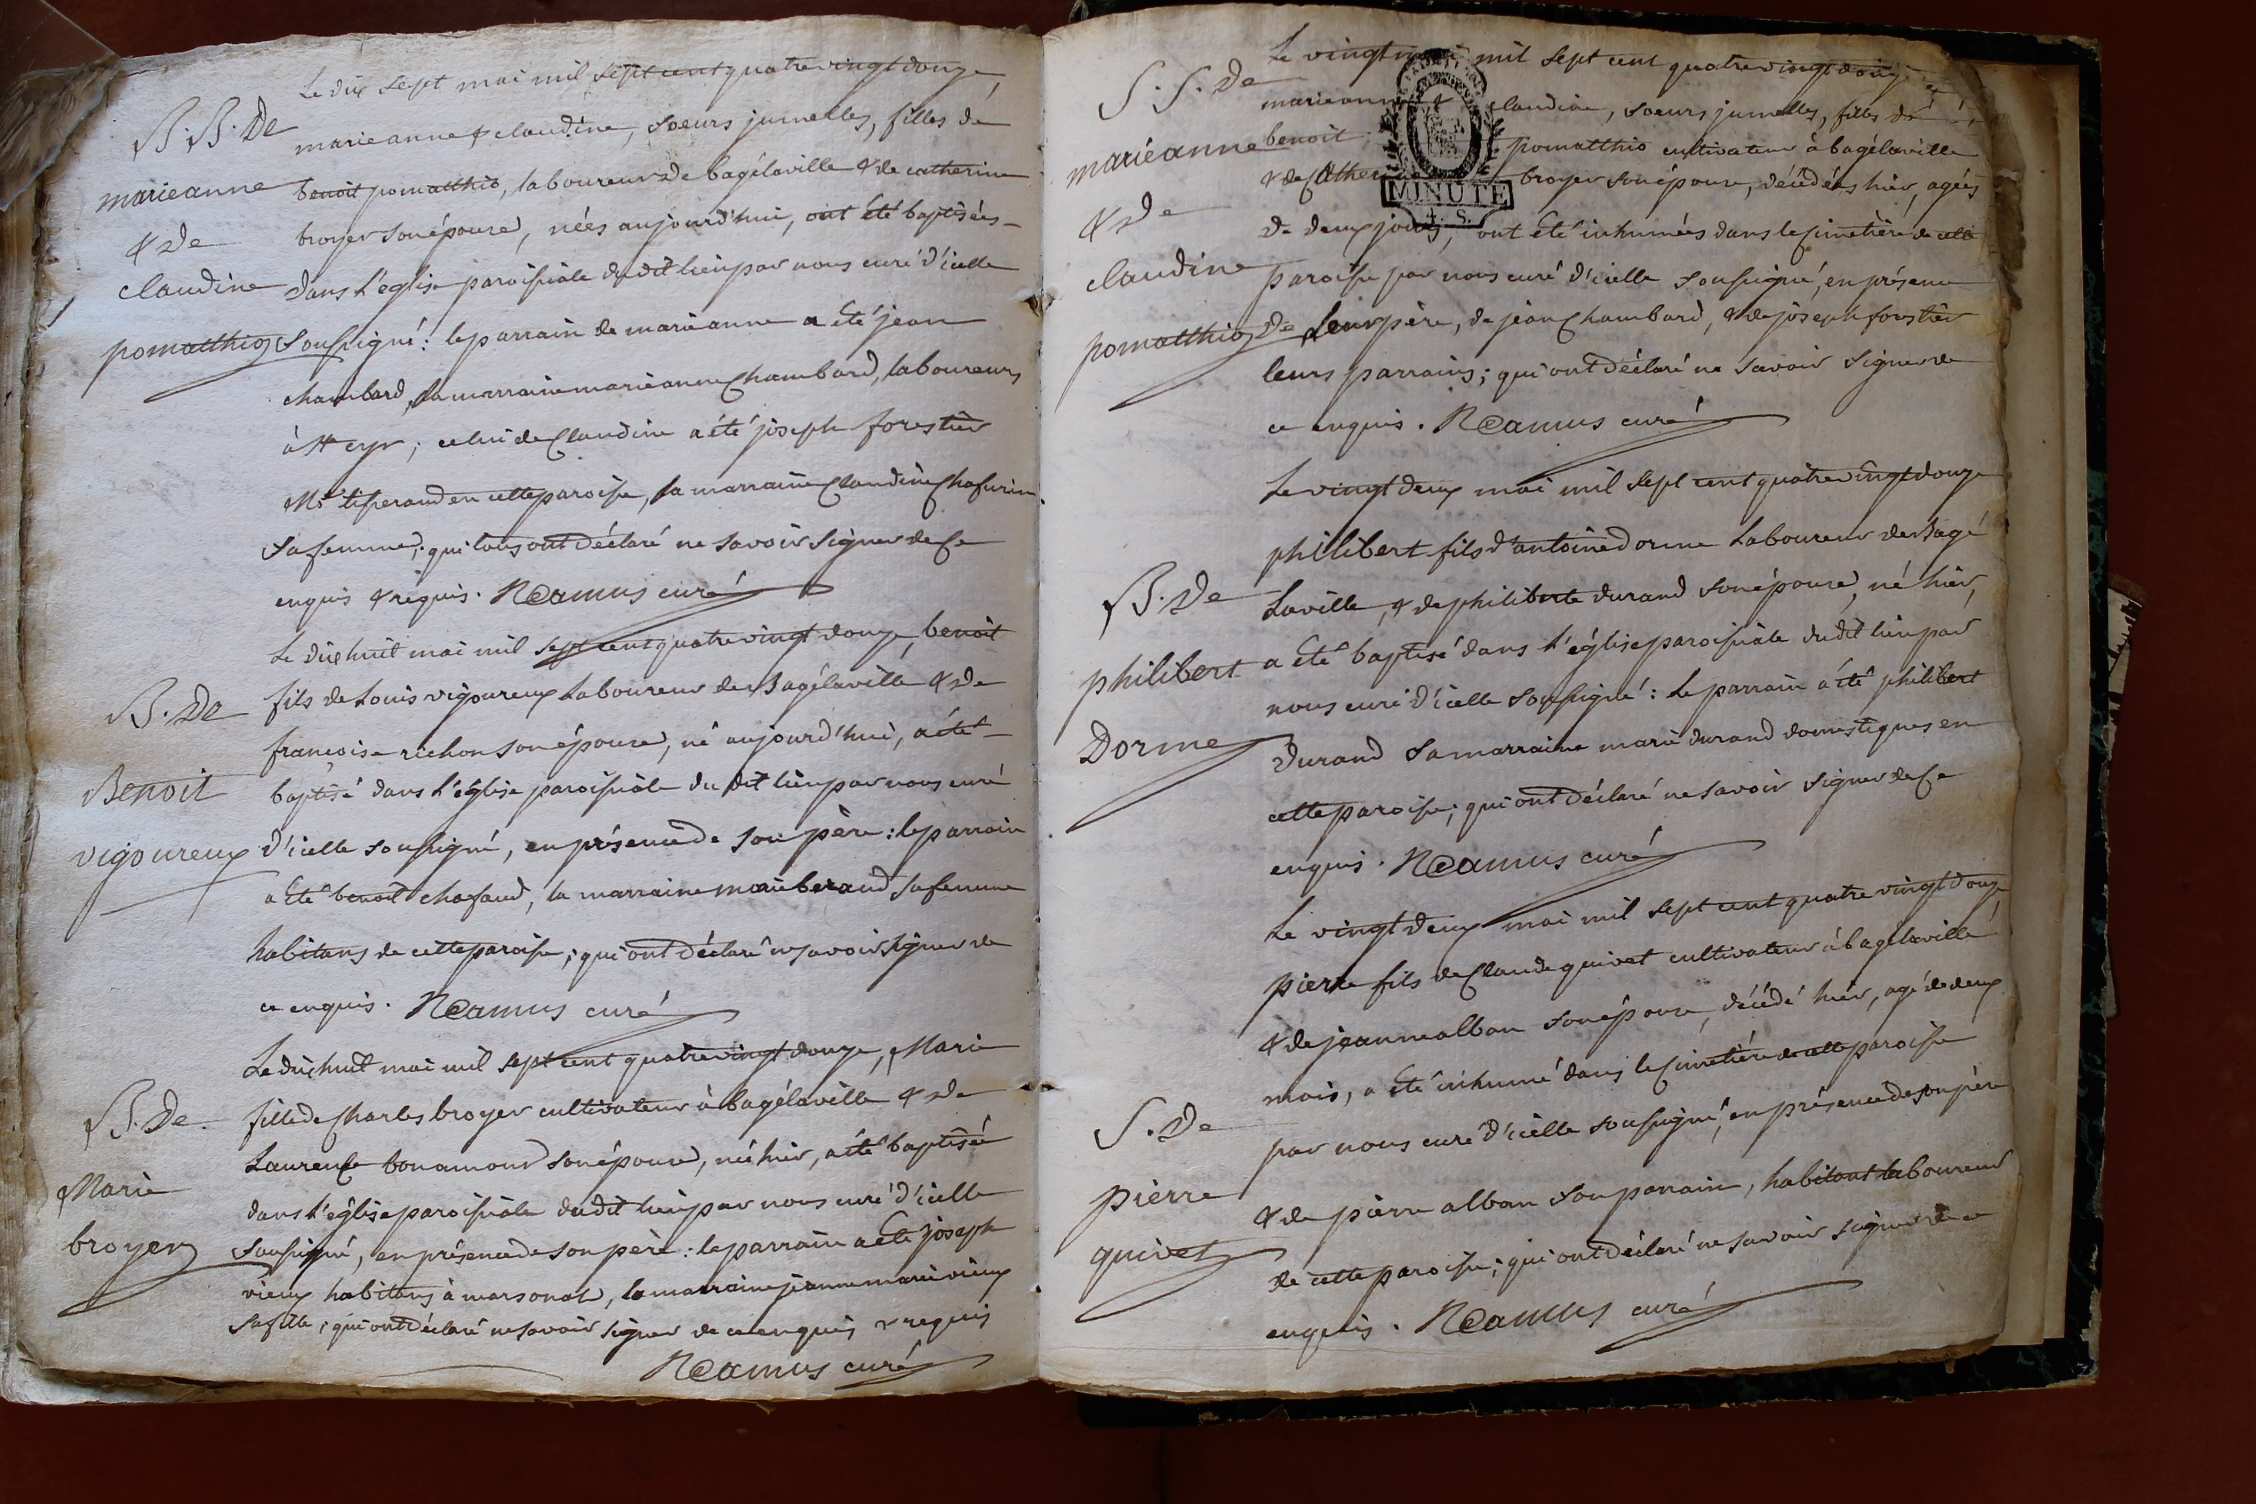 Le dix sept mai mil sept cent quatre vingt douze,
B. B. De
marieanne & claudine, soeurs jumelles, filles de
marieanne
benoit pomatthio, laboureur de bagélaville & de catherine
& De
broyer son épouse, nées aujourd'hui, ont été baptisées
claudine
dans l'église paroissiale du dit lieu par nous curé d'icelle
pomatthio
soussigné: le parrain de marieanne a été jean
chambard, sa marraine marieanne chambard, laboureurs
à St cyr; celui de Claudine a été joseph forestier
Md tisserand en cette paroisse, sa marraine Claudine Chafurin
sa femme; qui tous ont déclaré ne savoir signer de ce
enquis & requis. N Camus curé
Le dixhuit mai mil sept cent quatre vingt douze, benoit
B. De
fils de Louis vigoureux Laboureur de Bagélaville & de
francoise richon son épouse, né aujourd'hui, a été
Benoit
baptisé dans l'église paroissiale du dit lieu par nous curé
vigoureux
d'icelle soussigné, en présence de son père: le parrain
a été benoit chafaud, la marraine marie beraud sa femme
habitans de cette paroisse; qui ont déclaré ne savoir signer de
ce enquis. N Camus curé
Le dixhuit mai mil sept cent quatre vingt douze, Marie
B. De
fille de Charles broyer cultivateur à bagélaville & de
Laurence bonamour son épouse, née hier, a été baptisée
Marie
dans l'église paroissiale du dit lieu par nous curé d'icelle
broyer
soussigné, en présence de son père: le parrain a été joseph
vieux habitans à marsonas, la marraine jeanne marie vieux
sa fille; qui ont déclaré ne savoir signer de ce enquis & requis
N Camus curé
Le vingt mai mil sept cent quatre vingt douze
S. S. De
marieanne & claudine, soeurs jumelles, filles de
marieanne
benoit pomatthio cultivateur à bagélaville
& De
& de Cather broyer son épouse, décédées hier, agées
de deux jours, ont été inhumées dans le Cimetière de cette
claudine
paroisse par nous curé d'icelle soussigné, en présence
pomatthio
de leur père, de jean Chambard, & de joseph forestier
leurs parrains; qui ont déclaré ne savoir signer de
ce enquis. N Camus curé
MINUTE
4. S.
Le vingt deux mai mil sept cent quatre vingt douze
philibert fils d'antoine dorme Laboureur de Bagé
B. De
Laville, & de philiberte durand son épouse, né hier,
philibert
a été baptisé dans l'église paroissiale du dit lieu par
nous curé d'icelle soussigné: Le parrain a été philibert
Dorme
durand sa marraine marie durand domestiques en
cette paroisse; qui ont déclaré ne savoir signer de Ce
enquis. N Camus curé
Le vingt deux mai mil sept cent quatre vingt douze
pierre fils de Claude quivet cultivateur à bagélaville
& de jeanne alban son épouse, décédé hier, agé de deux
mois, a été inhumé dans le Cimetière de cette paroisse
S. De
par nous curé d'icelle soussigné, en présence de son père
pierre
& de pierre alban son parrain, habitant laboureur
quivet
de cette paroisse; qui ont déclaré ne savoir signer de ce
enquis. N Camus curé